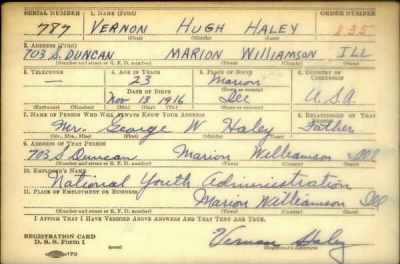 SERIAL NUMBER 1. NAME (Print) ORDER NUMBER
787 VERNON HUGH HALEY 835
(First) (Middle) (Last)
2. ADDRESS (Print)
703 S. DUNCAN MARION WILLIAMSON ILL
(Number and street or R. F. D. number) (Town) (County) (State)
3. TELEPHONE 4. AGE IN YEARS 5. PLACE OF BIRTH 6. COUNTRY OF CITIZENSHIP
— 23 Marion
DATE OF BIRTH (Town or county)
Nov 13 1916 Ill U.S.A.
(Exchange) (Number) (Mo.) (Day) (Yr.) (State or country)
7. NAME OF PERSON WHO WILL ALWAYS KNOW YOUR ADDRESS 8. RELATIONSHIP OF THAT PERSON
Mr. George W Haley Father
(Mr., Mrs., Miss) (First) (Middle) (Last)
9. ADDRESS OF THAT PERSON
703 S Duncan Marion Williamson Ill
(Number and street or R. F. D. number) (Town) (County) (State)
10. EMPLOYER'S NAME
National Youth Administration
11. PLACE OF EMPLOYMENT OR BUSINESS
Marion Williamson Ill
(Number and street or R. F. D. number) (Town) (County) (State)
I AFFIRM THAT I HAVE VERIFIED ABOVE ANSWERS AND THAT THEY ARE TRUE.
REGISTRATION CARD
D. S. S. Form 1 Vernon Haley
(Registrant's signature)